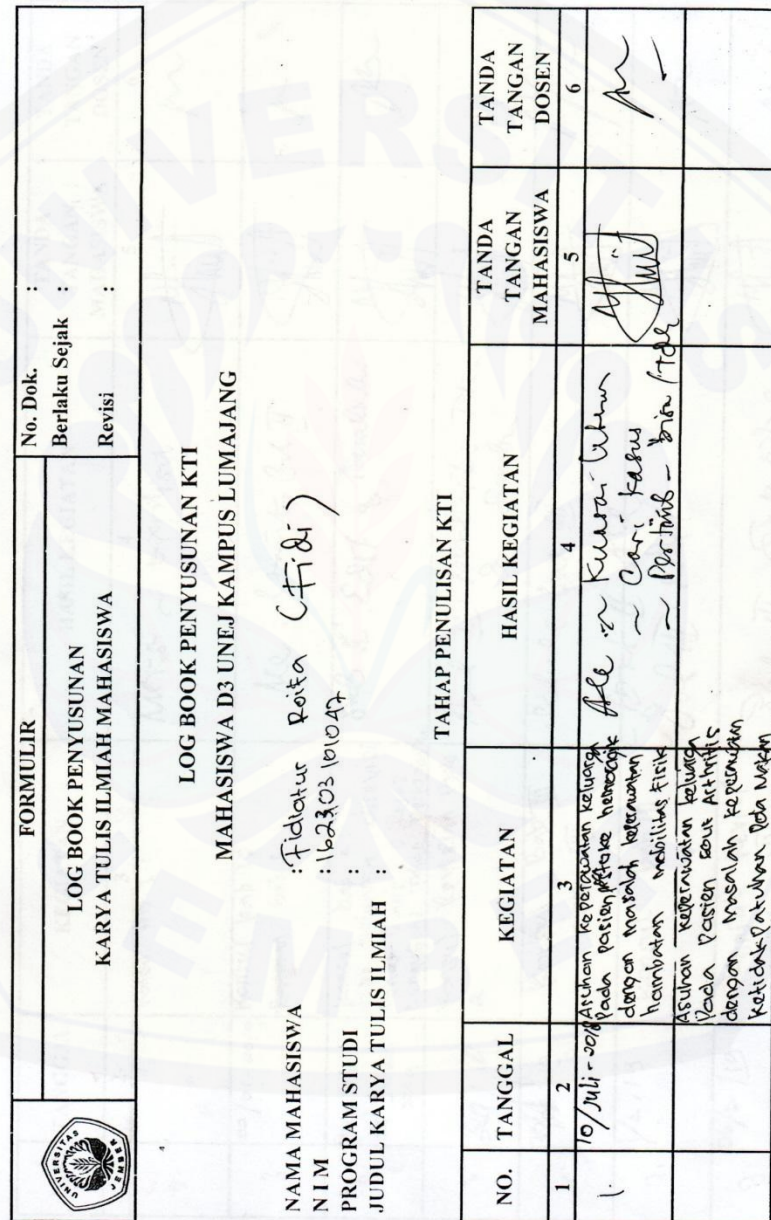 FORMULIR
LOG BOOK PENYUSUNAN
KARYA TULIS ILMIAH MAHASISWA
No. Dok. :
Berlaku Sejak :
Revisi :
UNIVERSITAS JEMBER
LOG BOOK PENYUSUNAN KTI
MAHASISWA D3 UNEJ KAMPUS LUMAJANG
NAMA MAHASISWA : Fidlatur Roita (Fidi)
N I M : 162303101047
PROGRAM STUDI :
JUDUL KARYA TULIS ILMIAH :
TAHAP PENULISAN KTI
NO. TANGGAL KEGIATAN HASIL KEGIATAN TANDA TANGAN MAHASISWA TANDA TANGAN DOSEN
1 2 3 4 5 6
1. 10/Juli-2018
Asuhan keperawatan keluarga
Pada pasien stroke hemoragik
dengan masalah keperawatan
hambatan mobilitas Fisik
Asuhan keperawatan keluarga
Pada Pasien Gout Arthritis
dengan masalah keperawatan
ketidakpatuhan Pola Makan
Acc ~ Kuasai
~ Cari kasus
~ bisa